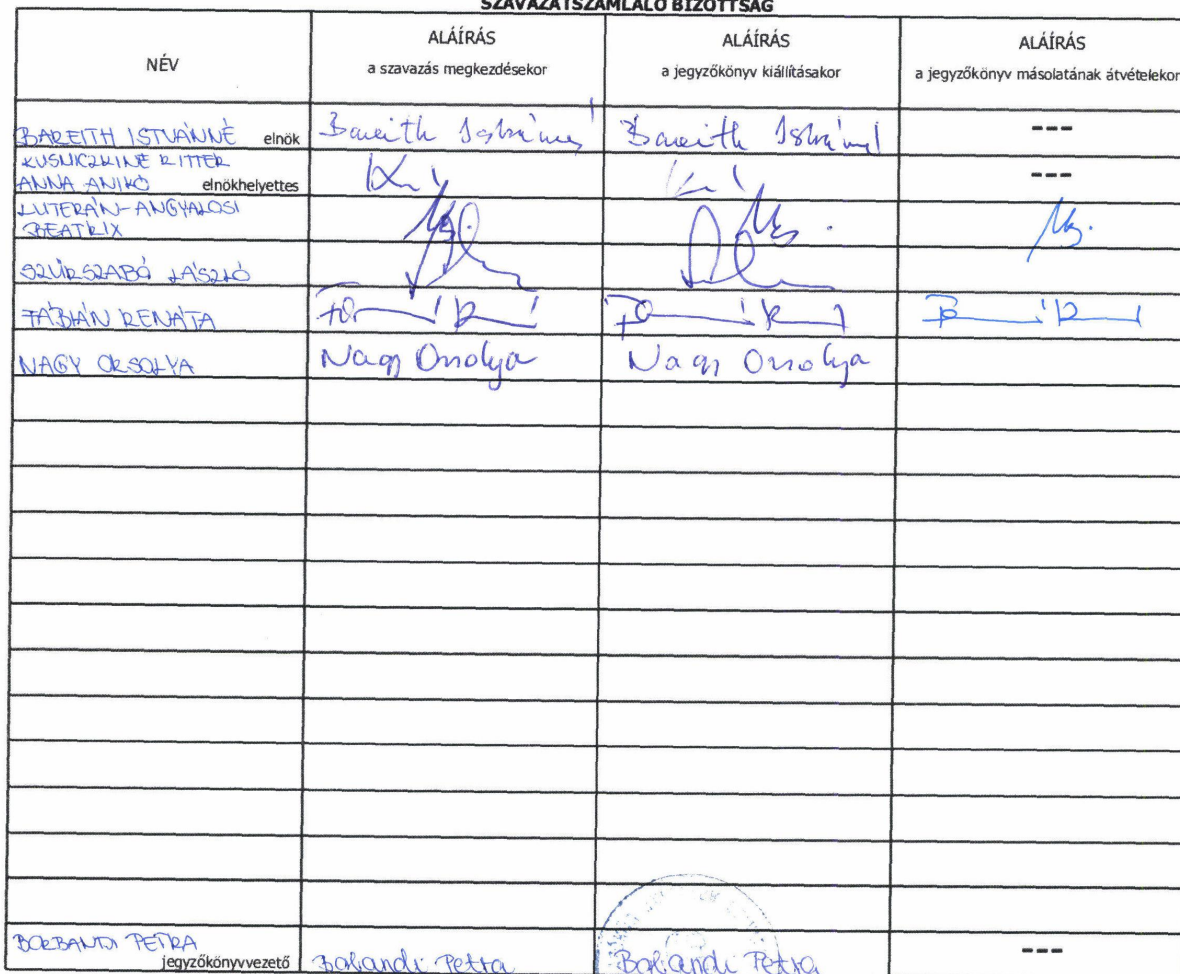 SZAVAZATSZÁMLÁLÓ BIZOTTSÁG
NÉV
ALÁÍRÁS
a szavazás megkezdésekor
ALÁÍRÁS
a jegyzőkönyv kiállításakor
ALÁÍRÁS
a jegyzőkönyv másolatának átvételekor
BAREITH ISTVÁNNÉ elnök Bareith Istvánné Bareith Istvánné ---
KUSNICZKINÉ RITTER
ANNA ANIKÓ elnökhelyettes ---
LUTERÁN-ANGYALOSI
BEATRIX
SZŰRSZABÓ LÁSZLÓ
FÁBIÁN RENÁTA
NAGY ORSOLYA Nagy Orsolya Nagy Orsolya
BORBÁNDI PETRA
jegyzőkönyvvezető Borbándi Petra Borbándi Petra ---